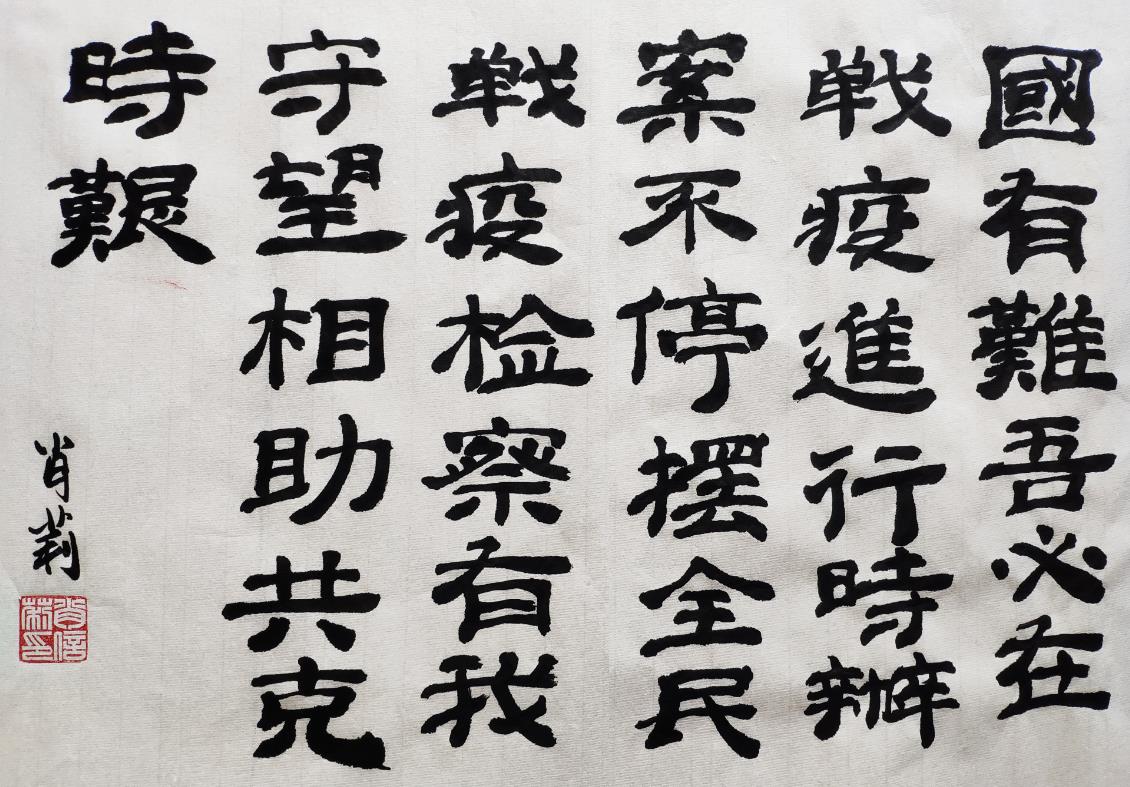 國有難吾必在
戦疫進行時辦
案不停摆全民
戦疫检察有我
守望相助共克
時艱
肖莉
肖莉信印